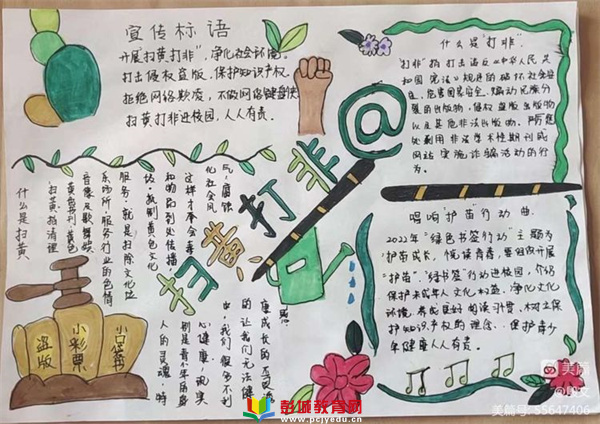 宣传标语
开展"扫黄打非",净化社会环境。
打击侵权盗版,保护知识产权。
拒绝网络欺凌,不做网络键盘侠
扫黄打非进校园,人人有责。
什么是"打非"
"打非"指打击违反《中华人民共
和国宪法》规定的破坏社会安
定,危害国家安全,煽动民族分
裂的出版物,侵权盗版出版物
以及其他非法出版物。严厉查
处利用非法学术性期刊或
网站实施诈骗活动的行
为。
扫黄打非@
什么是扫黄
扫黄指清理
黄色书刊黄色
音像及歌舞娱
乐场所服务行业的色情
服务,就是扫除文化垃
圾,抵制黄色文化
和物品到处传播,
这样才不会毒
化社会风
气,腐蚀
人的灵魂,特
别是青少年的身
心健康,现实
中,我们很多不利
的让我们无法健
康成长的不良诱
惑。
盗版
小彩票
小口袋书
唱响"护苗"行动曲。
2022年"绿色书签行动"主题为
"护苗成长,悦读青春,要组织开展
"护苗","绿书签"行动进校园,介绍
保护未成年人文化权益,净化文化
环境,养成良好阅读习惯,树立保
护知识产权的理念。保护青少
年健康人人有责。
彭城教育网
www.pcjyedu.cn
美篇
@陵文
美篇号:55647406